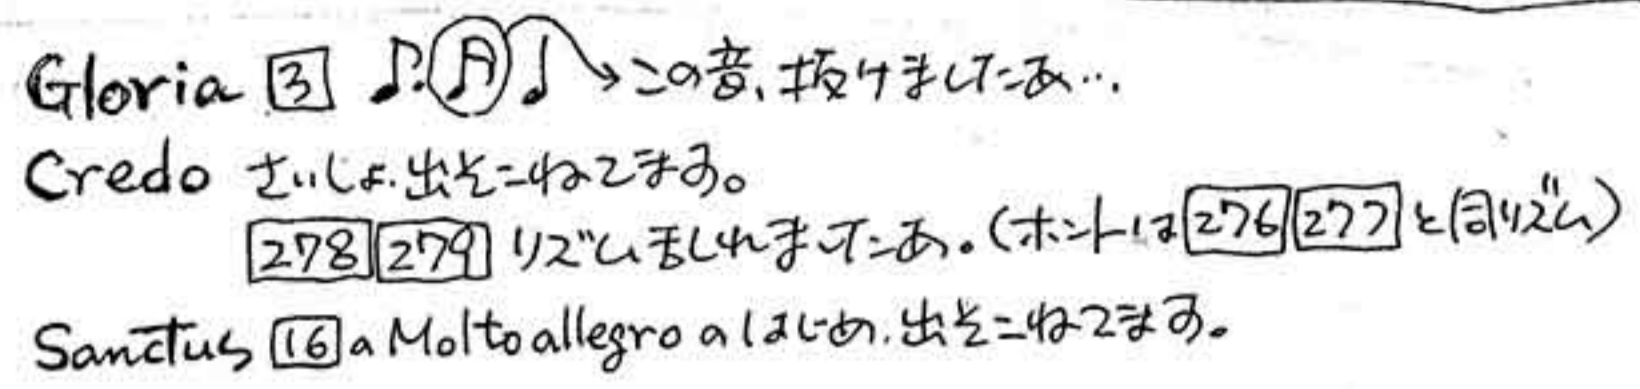 Gloria 3 ♪. ♬ ♩ →この音、抜けましたあ…
Credo さいしょ、出そこねてます。
278 279 リズム乱れましたあ。(ホントは 276 277 と同リズム)
Sanctus 16 の Molto allegro のはじめ、出そこねてます。